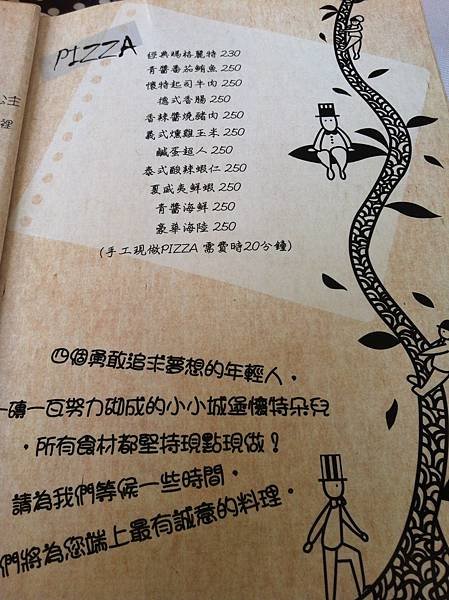 PIZZA
經典瑪格麗特 230
青醬番茄鮪魚 250
懷特起司牛肉 250
德式香腸 250
香辣醬燒豬肉 250
義式燻雞玉米 250
鹹蛋超人 250
泰式酸辣蝦仁 250
夏威夷鮮蝦 250
青醬海鮮 250
豪華海陸 250
(手工現做PIZZA 需費時20分鐘)
注
裡
四個勇敢追求夢想的年輕人，
一磚一瓦努力砌成的小小城堡懷特朵兒
，所有食材都堅持現點現做！
請為我們等候一些時間，
們將為您端上最有誠意的料理。